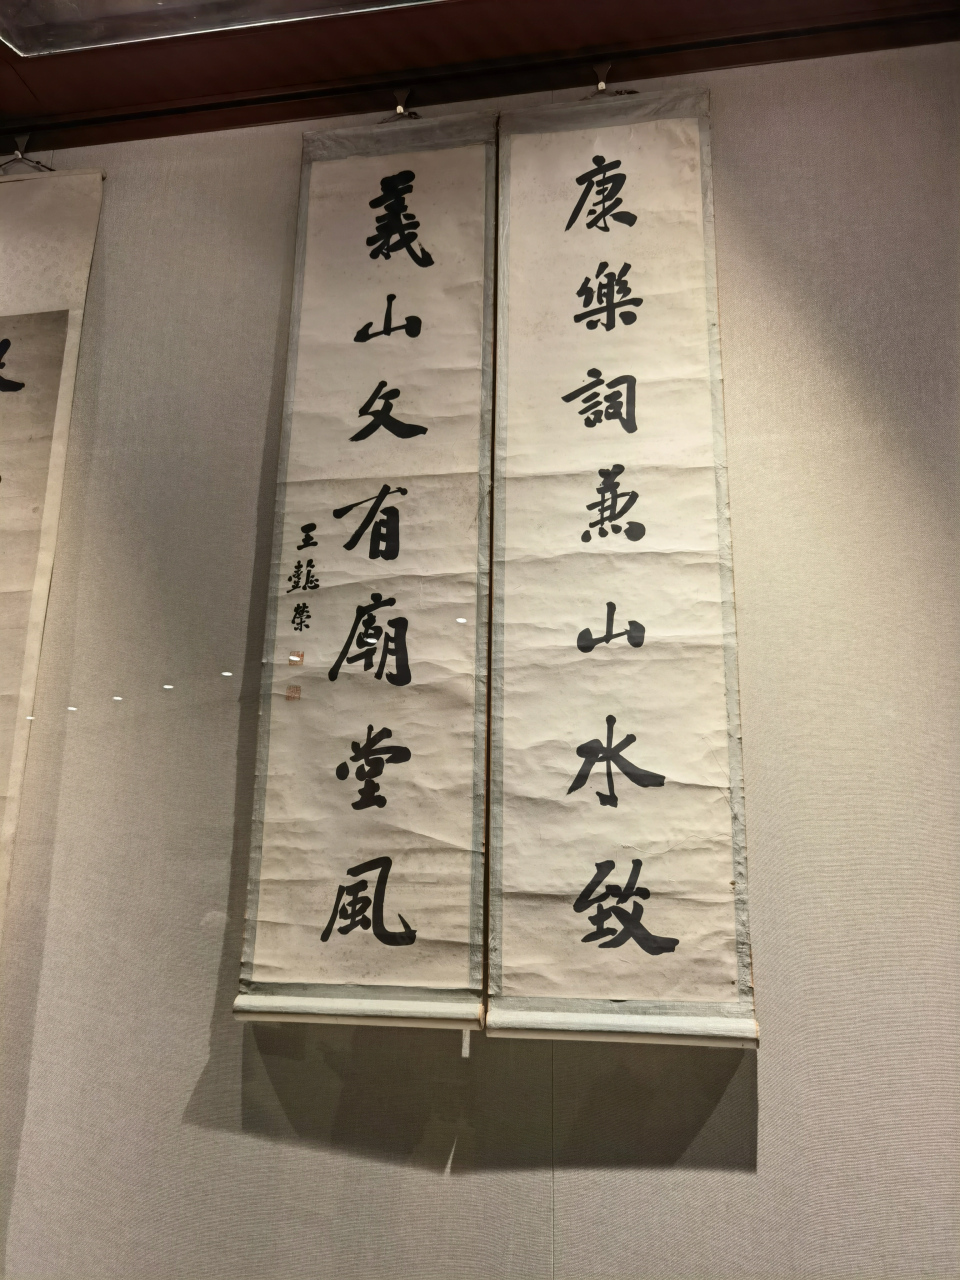 康樂詞兼山水致
義山文有廟堂風
王懿榮